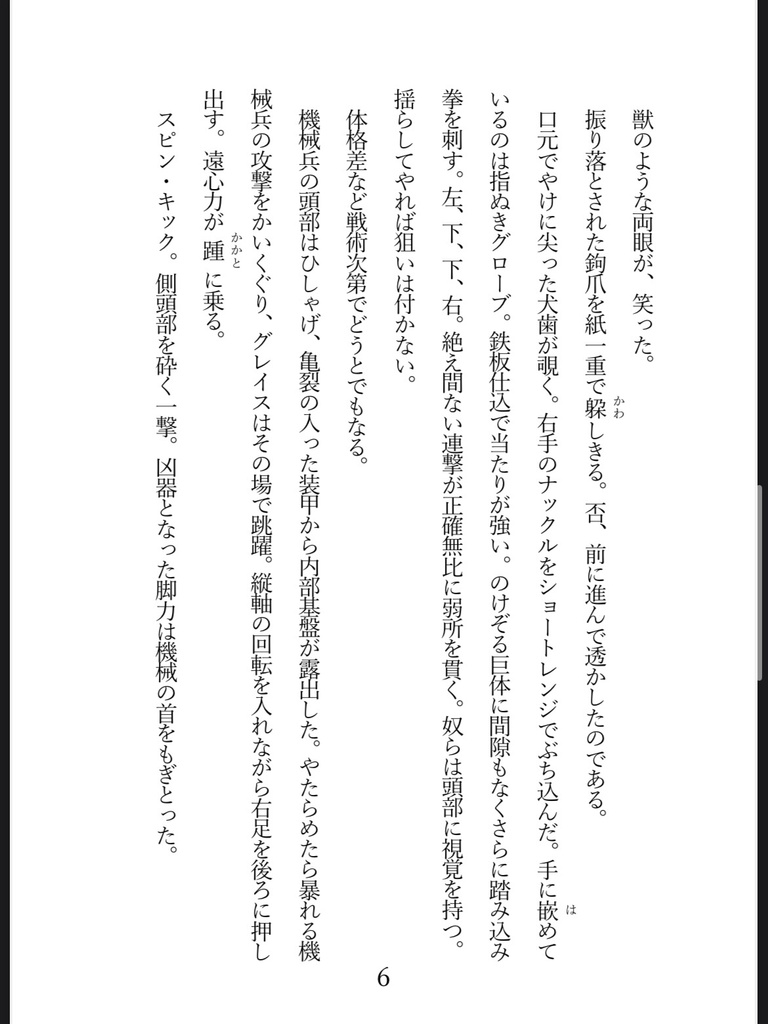 獣のような両眼が、笑った。
振り落とされた鉤爪を紙一重で躱しきる。否、前に進んで透かしたのである。
かわ
口元でやけに尖った犬歯が覗く。右手のナックルをショートレンジでぶち込んだ。手に嵌めて
は
いるのは指ぬきグローブ。鉄板仕込で当たりが強い。のけぞる巨体に間隙もなくさらに踏み込み
拳を刺す。左、下、下、右。絶え間ない連撃が正確無比に弱所を貫く。奴らは頭部に視覚を持つ。
揺らしてやれば狙いは付かない。
体格差など戦術次第でどうとでもなる。
機械兵の頭部はひしゃげ、亀裂の入った装甲から内部基盤が露出した。やたらめたら暴れる機
械兵の攻撃をかいくぐり、グレイスはその場で跳躍。縦軸の回転を入れながら右足を後ろに押し
出す。遠心力が踵に乗る。
かかと
スピン・キック。側頭部を砕く一撃。凶器となった脚力は機械の首をもぎとった。
6